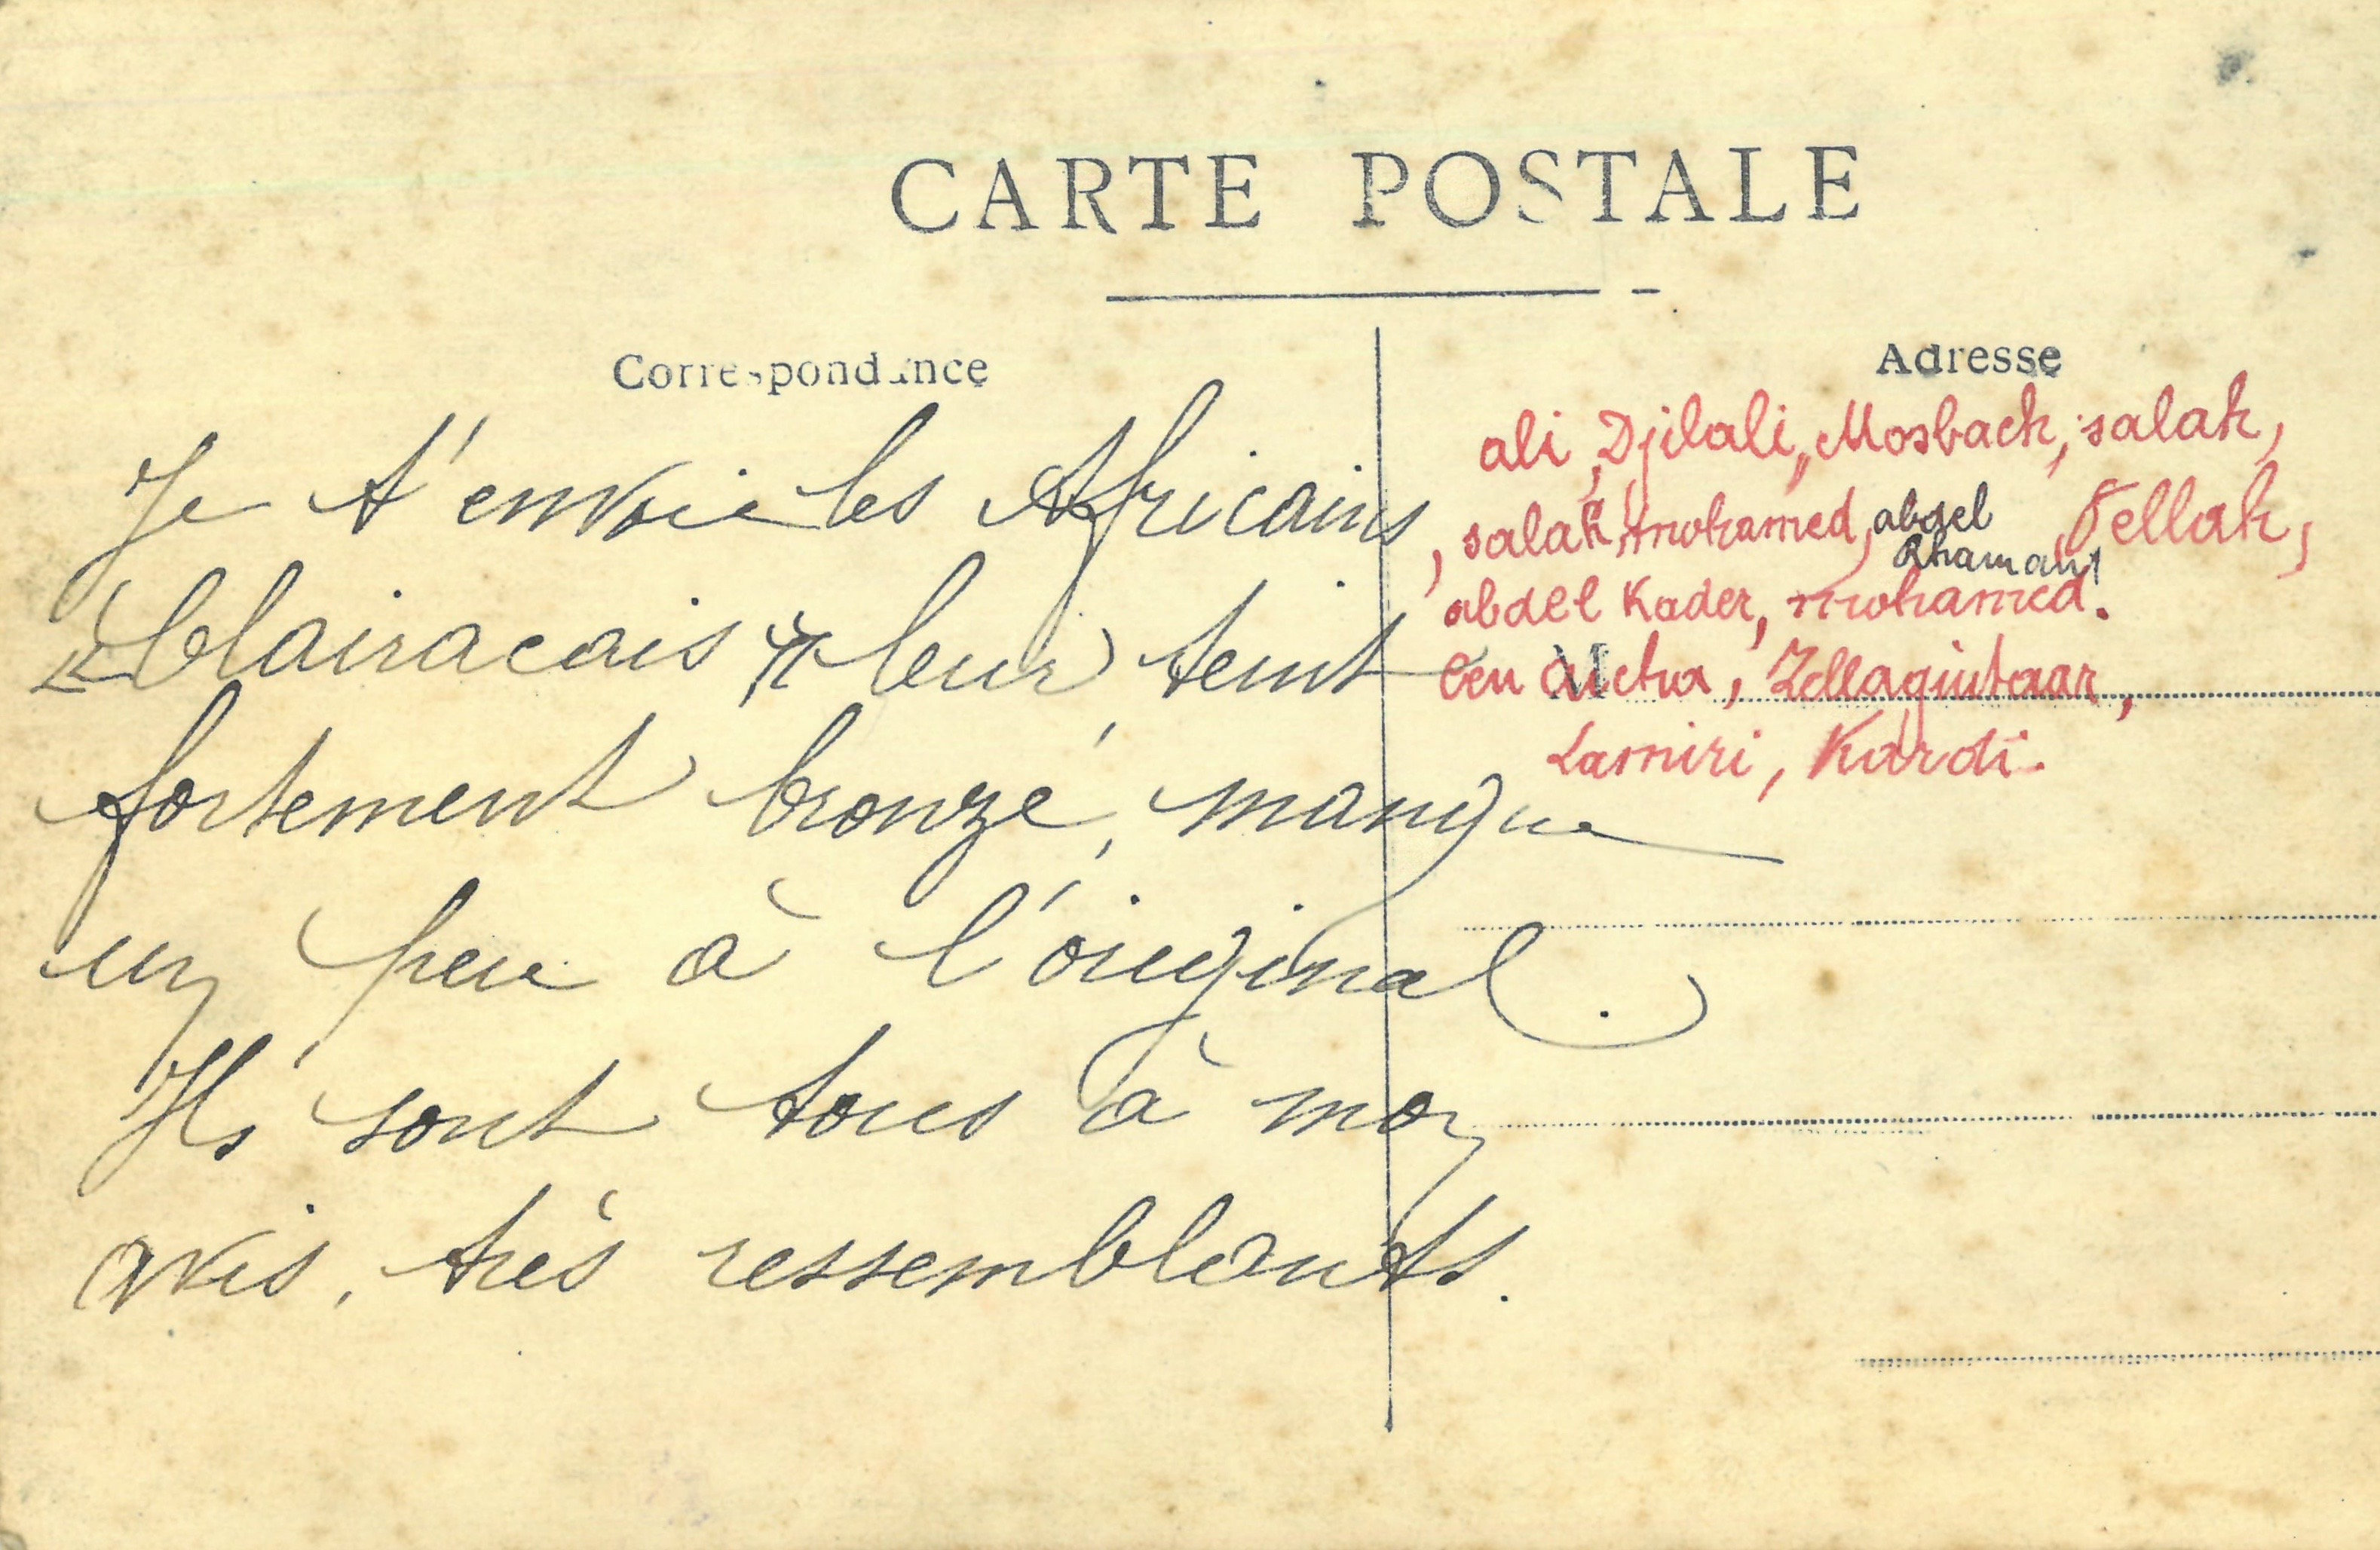 CARTE POSTALE
Correspondance
Je t'envoie les Africains
"Clairacais" leur teint
fortement bronzé, manque
un peu à l'original.
Ils sont tous à mon
avis, très ressemblants.
Adresse
ali, Djilali, Mosbach, salah,
, salah, mohamed, abdel Rhaman, Fellah,
abdel Kader, mohamed.
ben aicha,
Lamiri, Kardi.
M